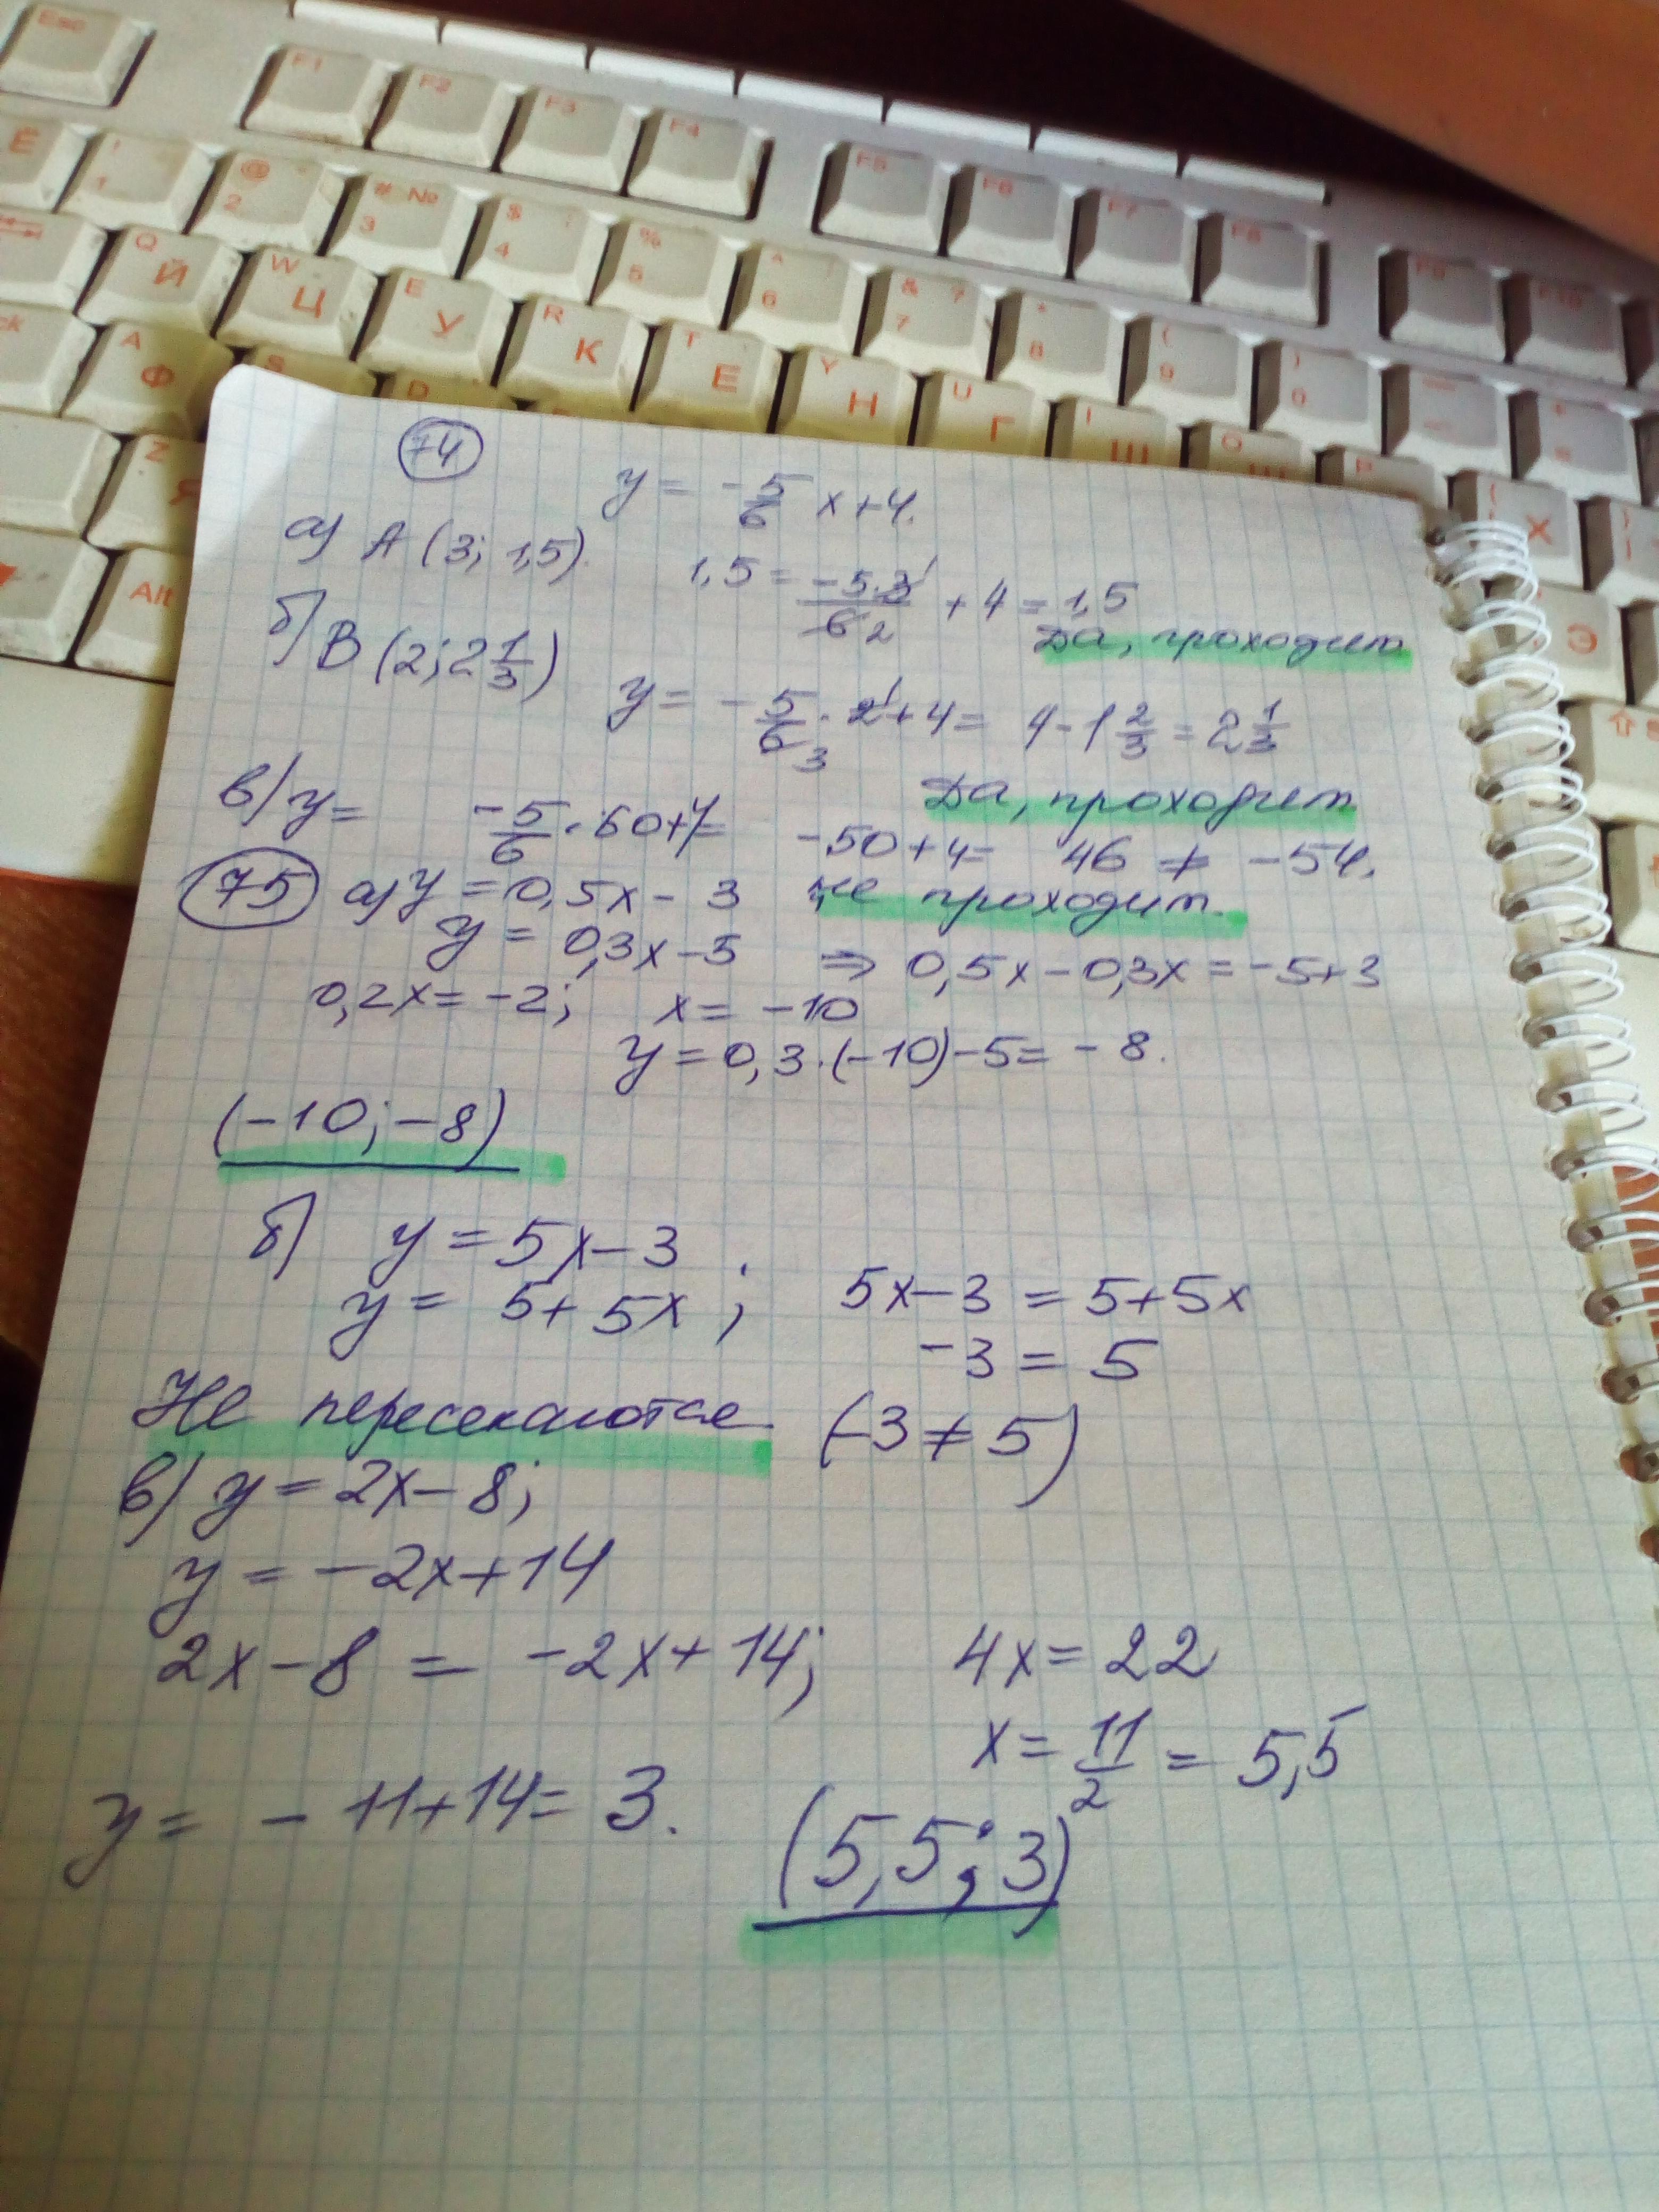 Esc F1 F2 F3 F4 F5 F6 F7 F8 F9 F10
Ё ! 1 @ 2 # № 3 $ ; 4 % 5 ^ 6 & ? 7 * 8 ( 9 ) 0
Q Й W Ц E У R К T Е Y Н U Г I Ш O Щ P { Х }
A Ф S D
Z Я Э
Alt
74
y = -5/6 x+4.
а) A (3; 1,5). 1,5 = -5·3¹/6 2 + 4 = 1,5
Да, проходит
б) B (2; 2 1/3)
y = -5/6 3 · 2¹ + 4 = 4 - 1 2/3 = 2 1/3
Да, проходит
в) y = -5/6 · 60+4= -50+4= 46 ≠ -54.
не проходит.
75 а) y = 0,5x - 3
y = 0,3x - 5 ⇒ 0,5x - 0,3x = -5+3
0,2x = -2; x = -10
y = 0,3·(-10)-5 = -8.
(-10; -8)
б) y = 5x - 3
y = 5+5x ; 5x-3 = 5+5x
-3 = 5
Не пересекаются (-3 ≠ 5)
в) y = 2x - 8;
y = -2x+14
2x - 8 = -2x + 14; 4x = 22
x = 11/2 = 5,5
y = - 11+14 = 3.
(5,5; 3)